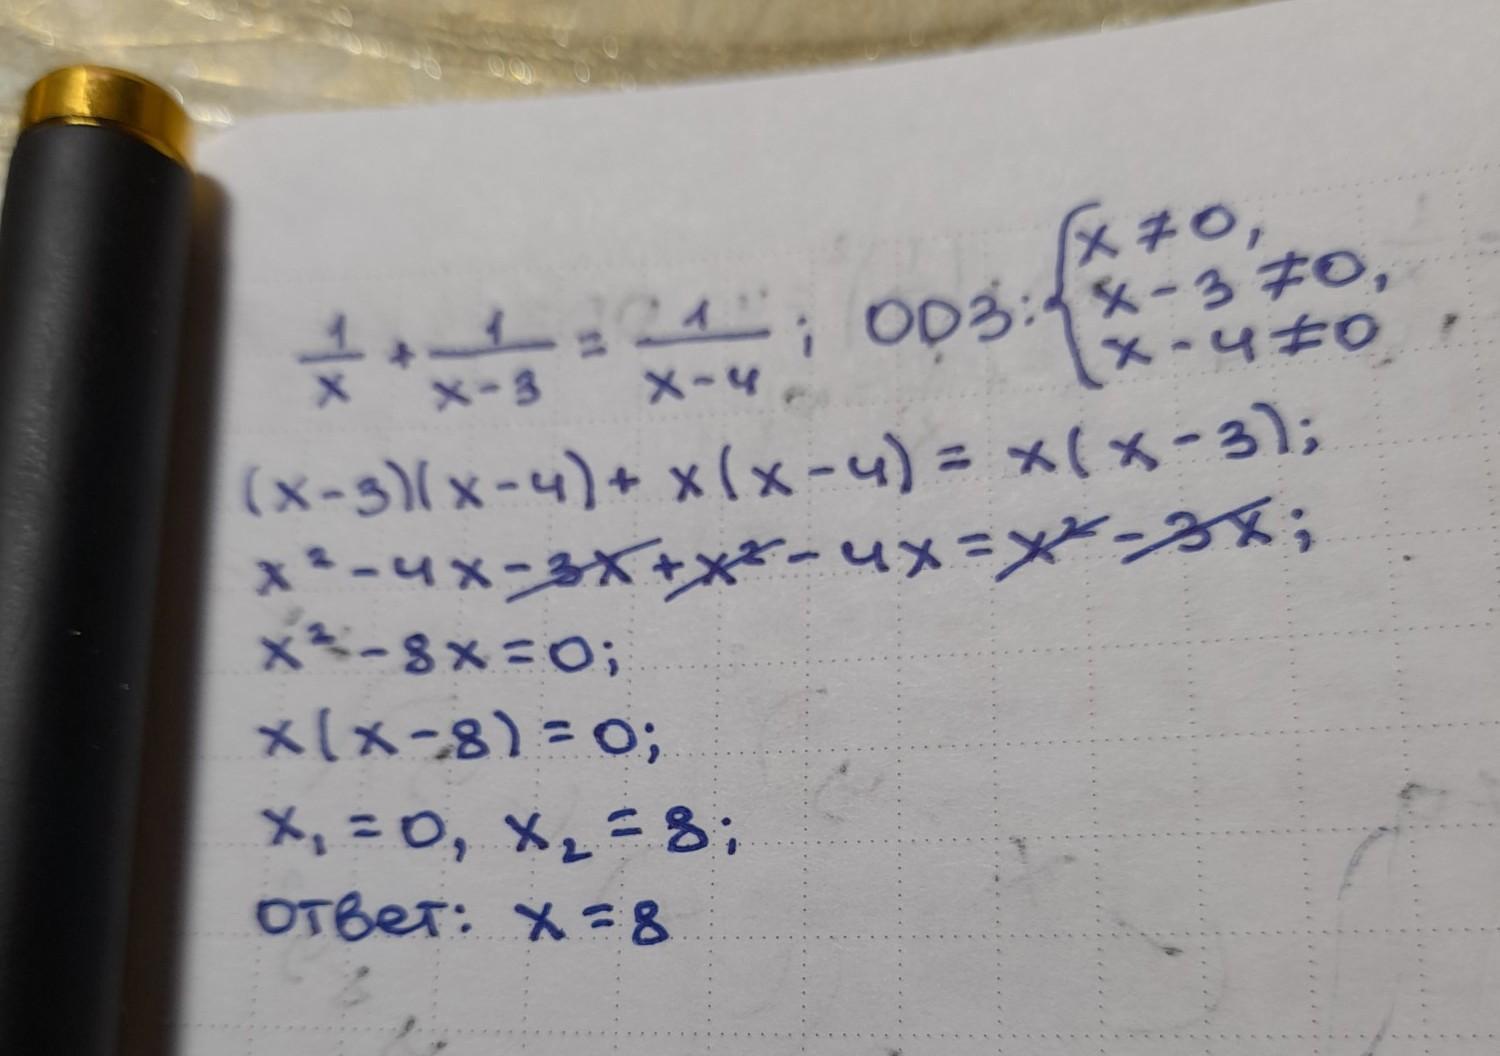 1/x + 1/(x-3) = 1/(x-4); ОДЗ: { x ≠ 0, x-3 ≠ 0, x-4 ≠ 0
(x-3)(x-4) + x(x-4) = x(x-3);
x² - 4x - 3x + x² - 4x = x² - 3x;
x² - 8x = 0;
x(x-8) = 0;
x₁ = 0, x₂ = 8;
ответ: x = 8